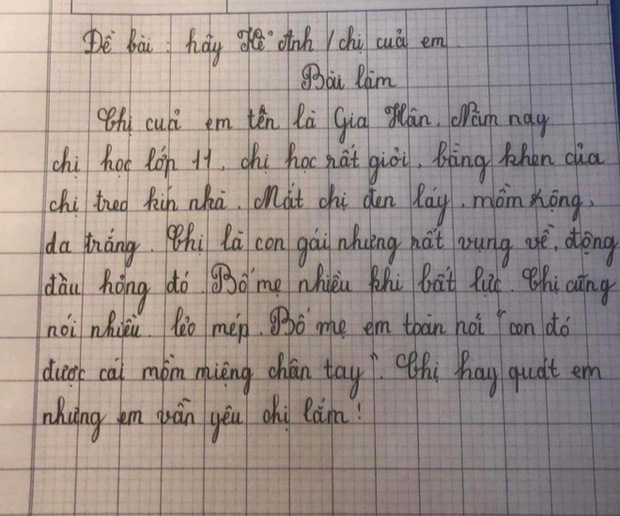 Đề bài : hãy Kể Anh / chị cuả em.
Bài làm
Chị cuả em tên là Gia Hân. Năm nay
chị học lớp 11, chị học rất giỏi, bằng khen của
chị treo kín nhà. Mắt chị đen láy, mồm rộng,
da trắng. Chị là con gái nhưng rất vụng về, động
đâu hỏng đó. Bố mẹ nhiều khi bất lực. Chị cũng
nói nhiều lẻo mép. Bố mẹ em toàn nói "con đó
được cái mồm miệng chân tay". Chị hay quát em
nhưng em vẫn yêu chị lắm!